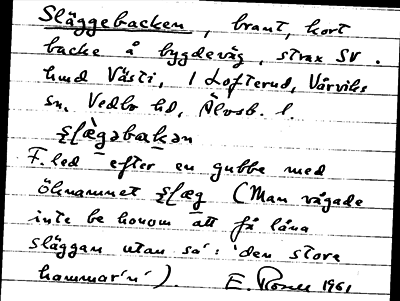 Släggebacken, brant, kort
backe å bygdeväg, strax SV.
hmd Västi, i Lofterud, Vårviks
sn, Vedbo hd, Älvsb. l.
ʂḷæ̀gəbakən
F. led efter en gubbe med
öknamnet ʂḷæg (Man vågade
inte be honom att få låna
släggan utan sa': 'den store
hammar'n').
E. Rosell 1961